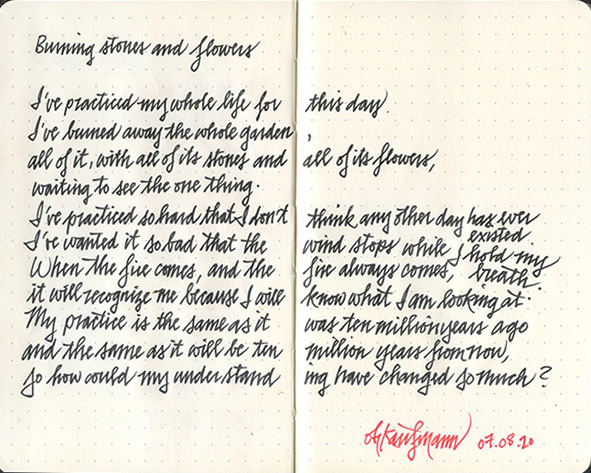 Burning stones and flowers
I've practiced my whole life for this day.
I've burned away the whole garden,
all of it, with all of its stones and all of its flowers,
waiting to see the one thing.
I've practiced so hard that I don't think any other day has ever existed.
I've wanted it so bad that the wind stops while I hold my breath.
When the fire comes, and the fire always comes,
it will recognize me because I will know what I am looking at.
My practice is the same as it was ten million years ago
and the same as it will be ten million years from now,
So how could my understanding have changed so much?
Kaufmann 07.08.20